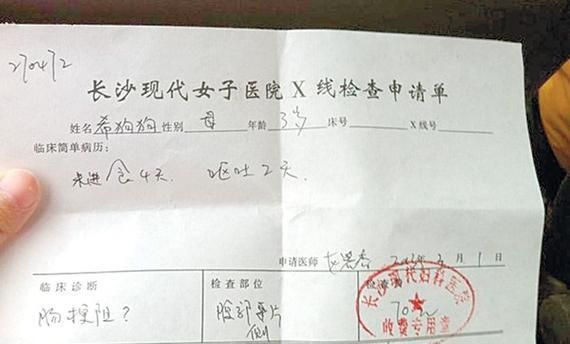 270472
长沙现代女子医院 X 线检查申请单
姓名 希狗狗 性别 母 年龄 3岁 床号 X线号
临床简单病历：
未进食4天. 呕吐2天.
申请医师 月 1 日
临床诊断 检查部位 检查费
肠梗阻？ 腹部平片 70元
侧
长沙现代妇科医院
收费专用章